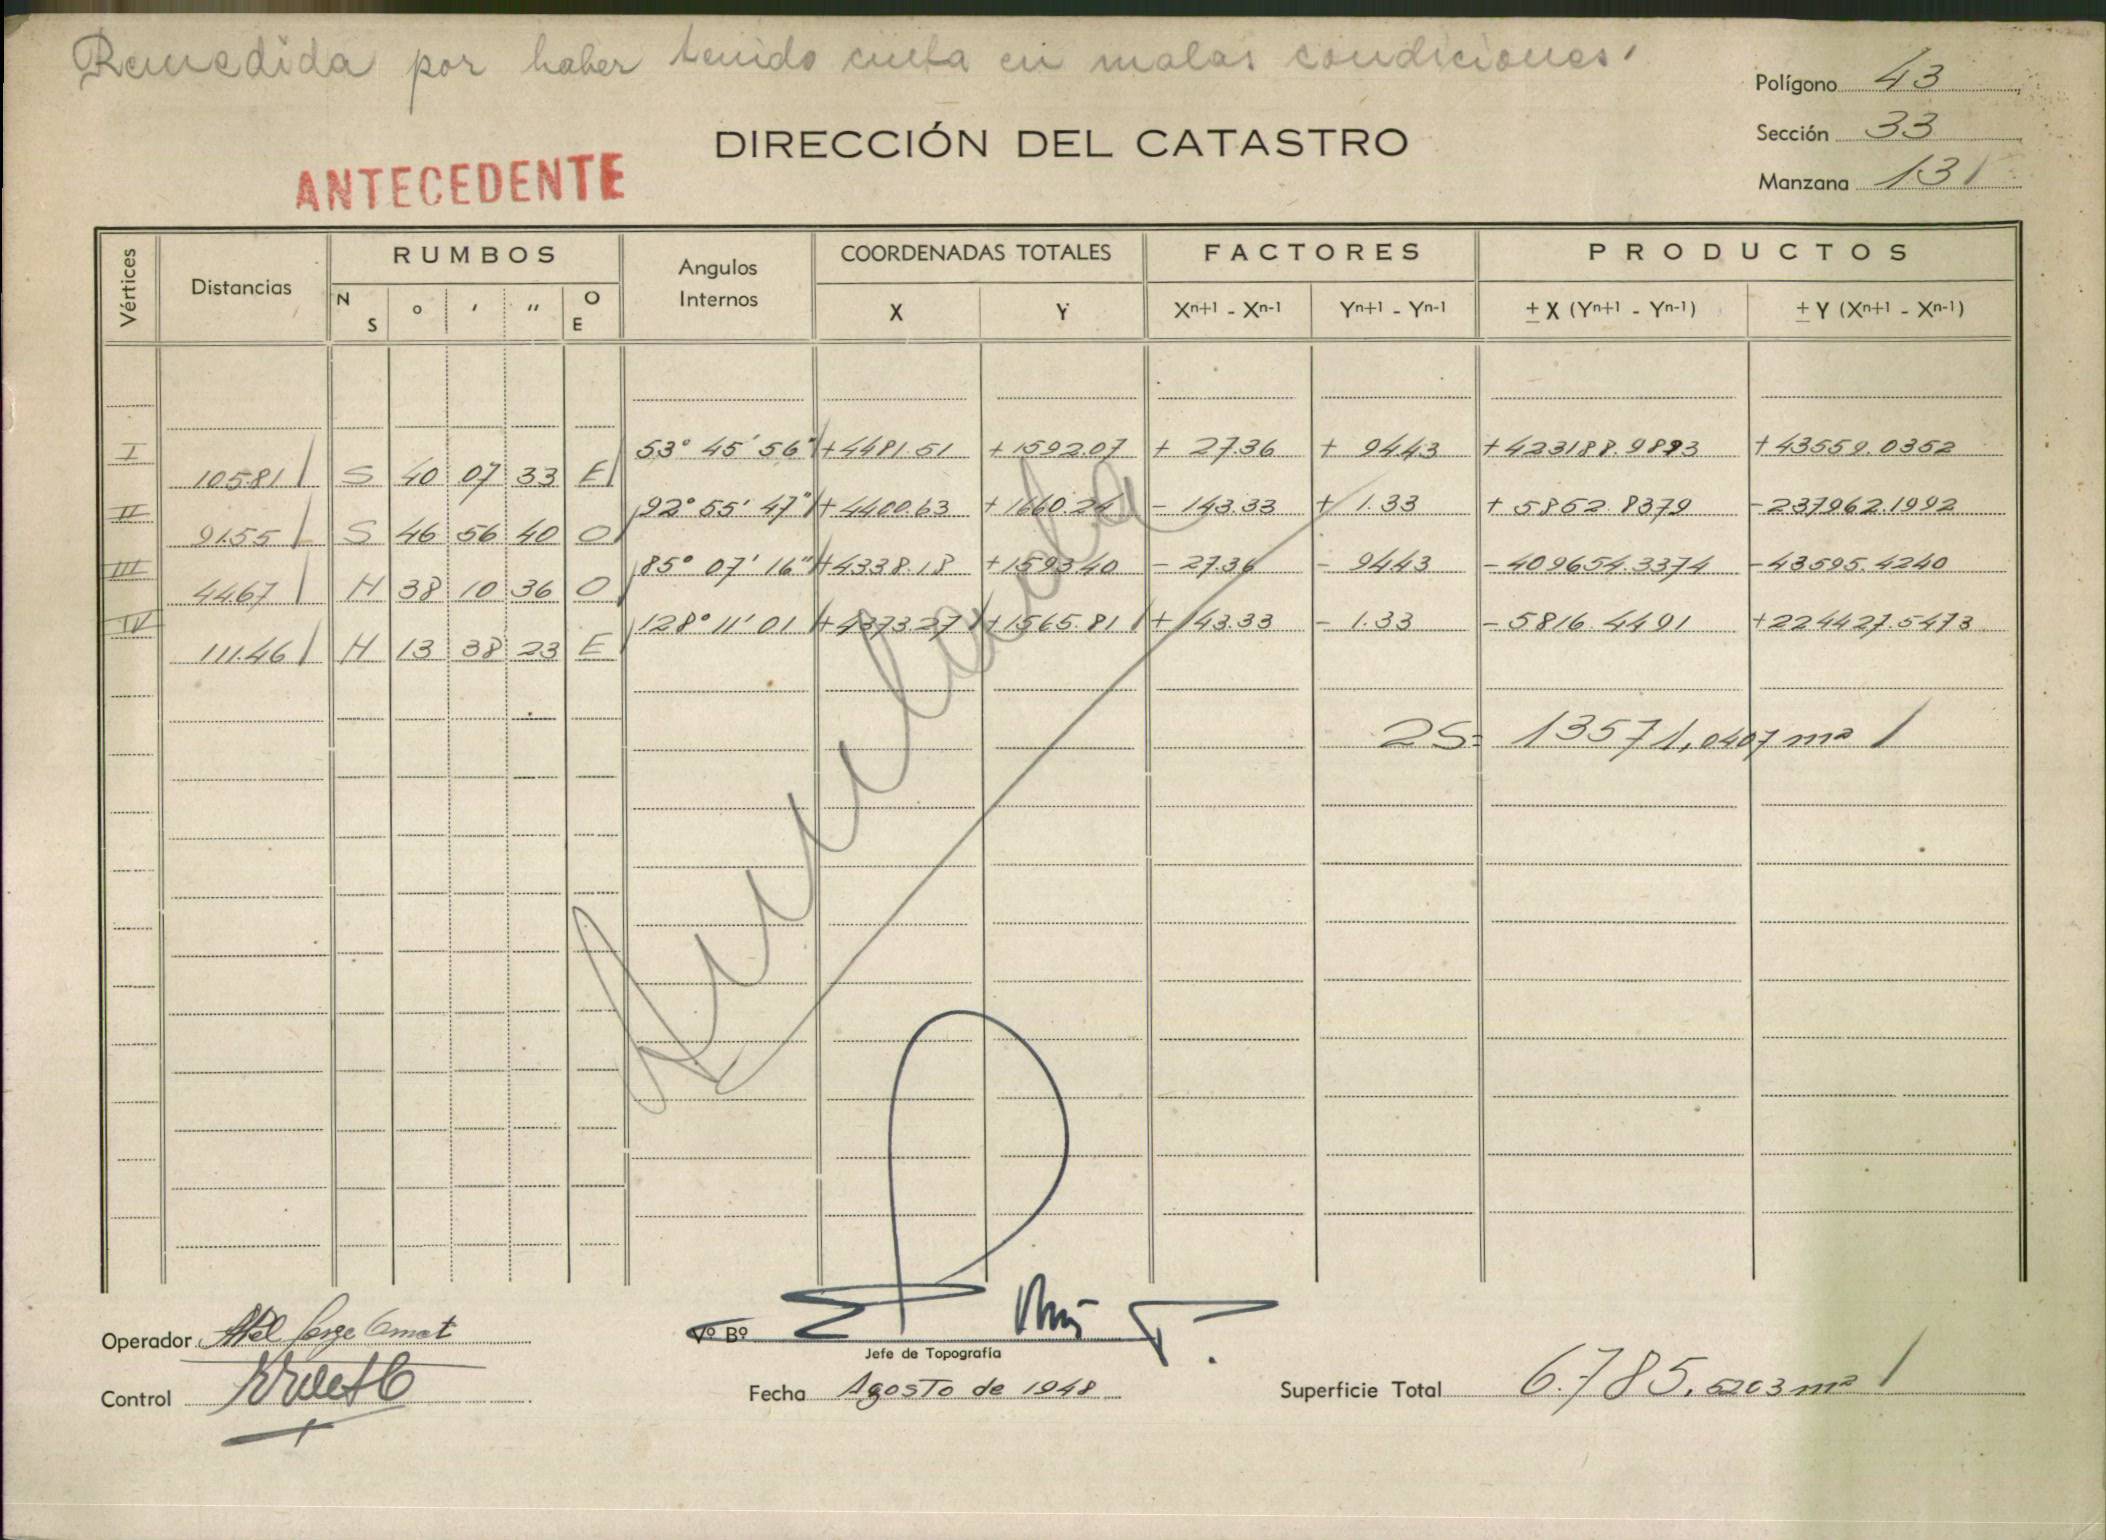 Remedida por haber tenido cinta en malas condiciones.
Polígono 43
Sección 33
Manzana 131
DIRECCIÓN DEL CATASTRO
ANTECEDENTE
Vértices Distancias RUMBOS Angulos Internos COORDENADAS TOTALES FACTORES PRODUCTOS
N S ° ' " O E X Y Xn+1 - Xn-1 Yn+1 - Yn-1 ± X (Yn+1 - Yn-1) ± Y (Xn+1 - Xn-1)
I 53° 45' 56" +4481.51 +1592.07 + 27.36 + 94.43 +423188.9893 +43559.0352
105.81 S 40 07 33 E
II 92° 55' 47" +4400.63 +1660.24 - 143.33 + 1.33 +5852.8379 -237962.1992
91.55 S 46 56 40 O
III 85° 07' 16" +4338.18 +1593.40 - 27.36 - 94.43 -409654.3374 -43595.4240
44.67 N 38 10 36 O
IV 128° 11' 01 +4373.27 +1565.81 + 143.33 - 1.33 -5816.4491 +224427.5473
111.46 N 13 38 23 E
2S= 13571,0407 m2
Anulada
Operador Abel Jorge Amat
Vº Bº
Jefe de Topografía
Control
Fecha Agosto de 1948
Superficie Total 6.785,5203 m2